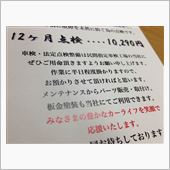 12ヶ月点検・・・・10,290円
車検・法定点検整備は民間指定車検工場の当社に
ぜひご用命頂きますようお願い申し上げます。
作業に半日程度掛かりますので、
お預かりさせて頂ければと思います。
メンテナンスからパーツ販売・取付け、
板金塗装も当社にてご利用できます。
みなさまの豊かなカーライフを笑顔で
応援いたします。
お待ちしております